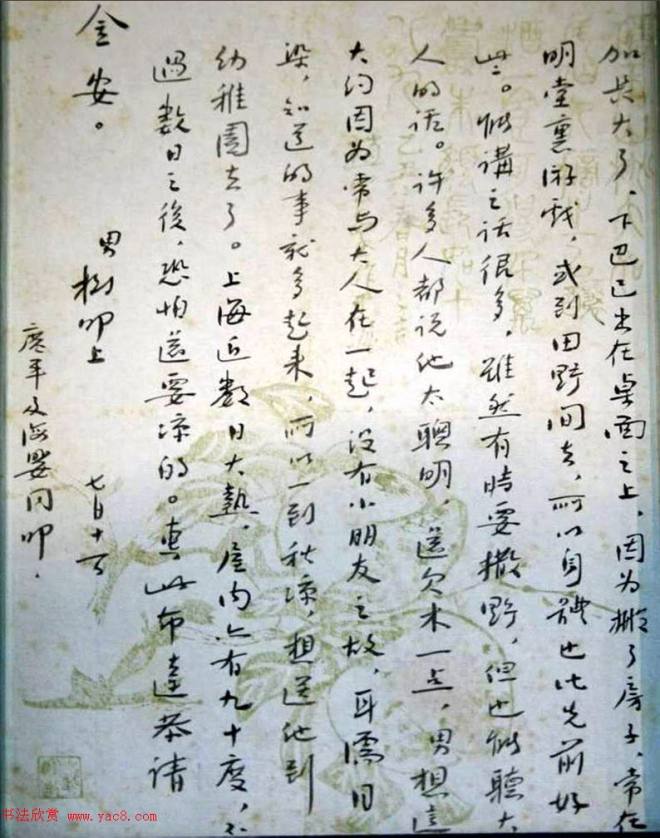 加長大了，下巴已出在桌面之上，因为搬了房子，常在
明堂裏游戏，或到田野間去，所以身體也比先前好
些。能講之话很多，雖然有時要撒野，但也能聽大
人的话。许多人都说他太聰明，還欠木一点，男想這
大约因为常与大人在一起，没有小朋友之故，耳濡目
染，知道的事就多起来，所以一到秋凉，想送他到
幼稚園去了。上海近數日大熱，屋内亦有九十度，不
過數日之後，恐怕還要凉的。專此布達恭请
金安。
男樹叩上 七月十一日
廣平及海嬰同叩．
书法欣赏 www.yac8.com